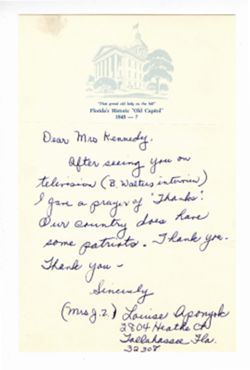 "That great old lady on the hill"
Florida's Historic "Old Capitol"
1845 — ?
Dear Mrs Kennedy.
After seeing you on
television (B. Walters interview)
I gave a prayer of "Thanks".
Our country does have
some patriots. Thank you.
Thank you –
Sincerely
(Mrs J.Z.) Louise
2804
Tallahassee Fla.
32308